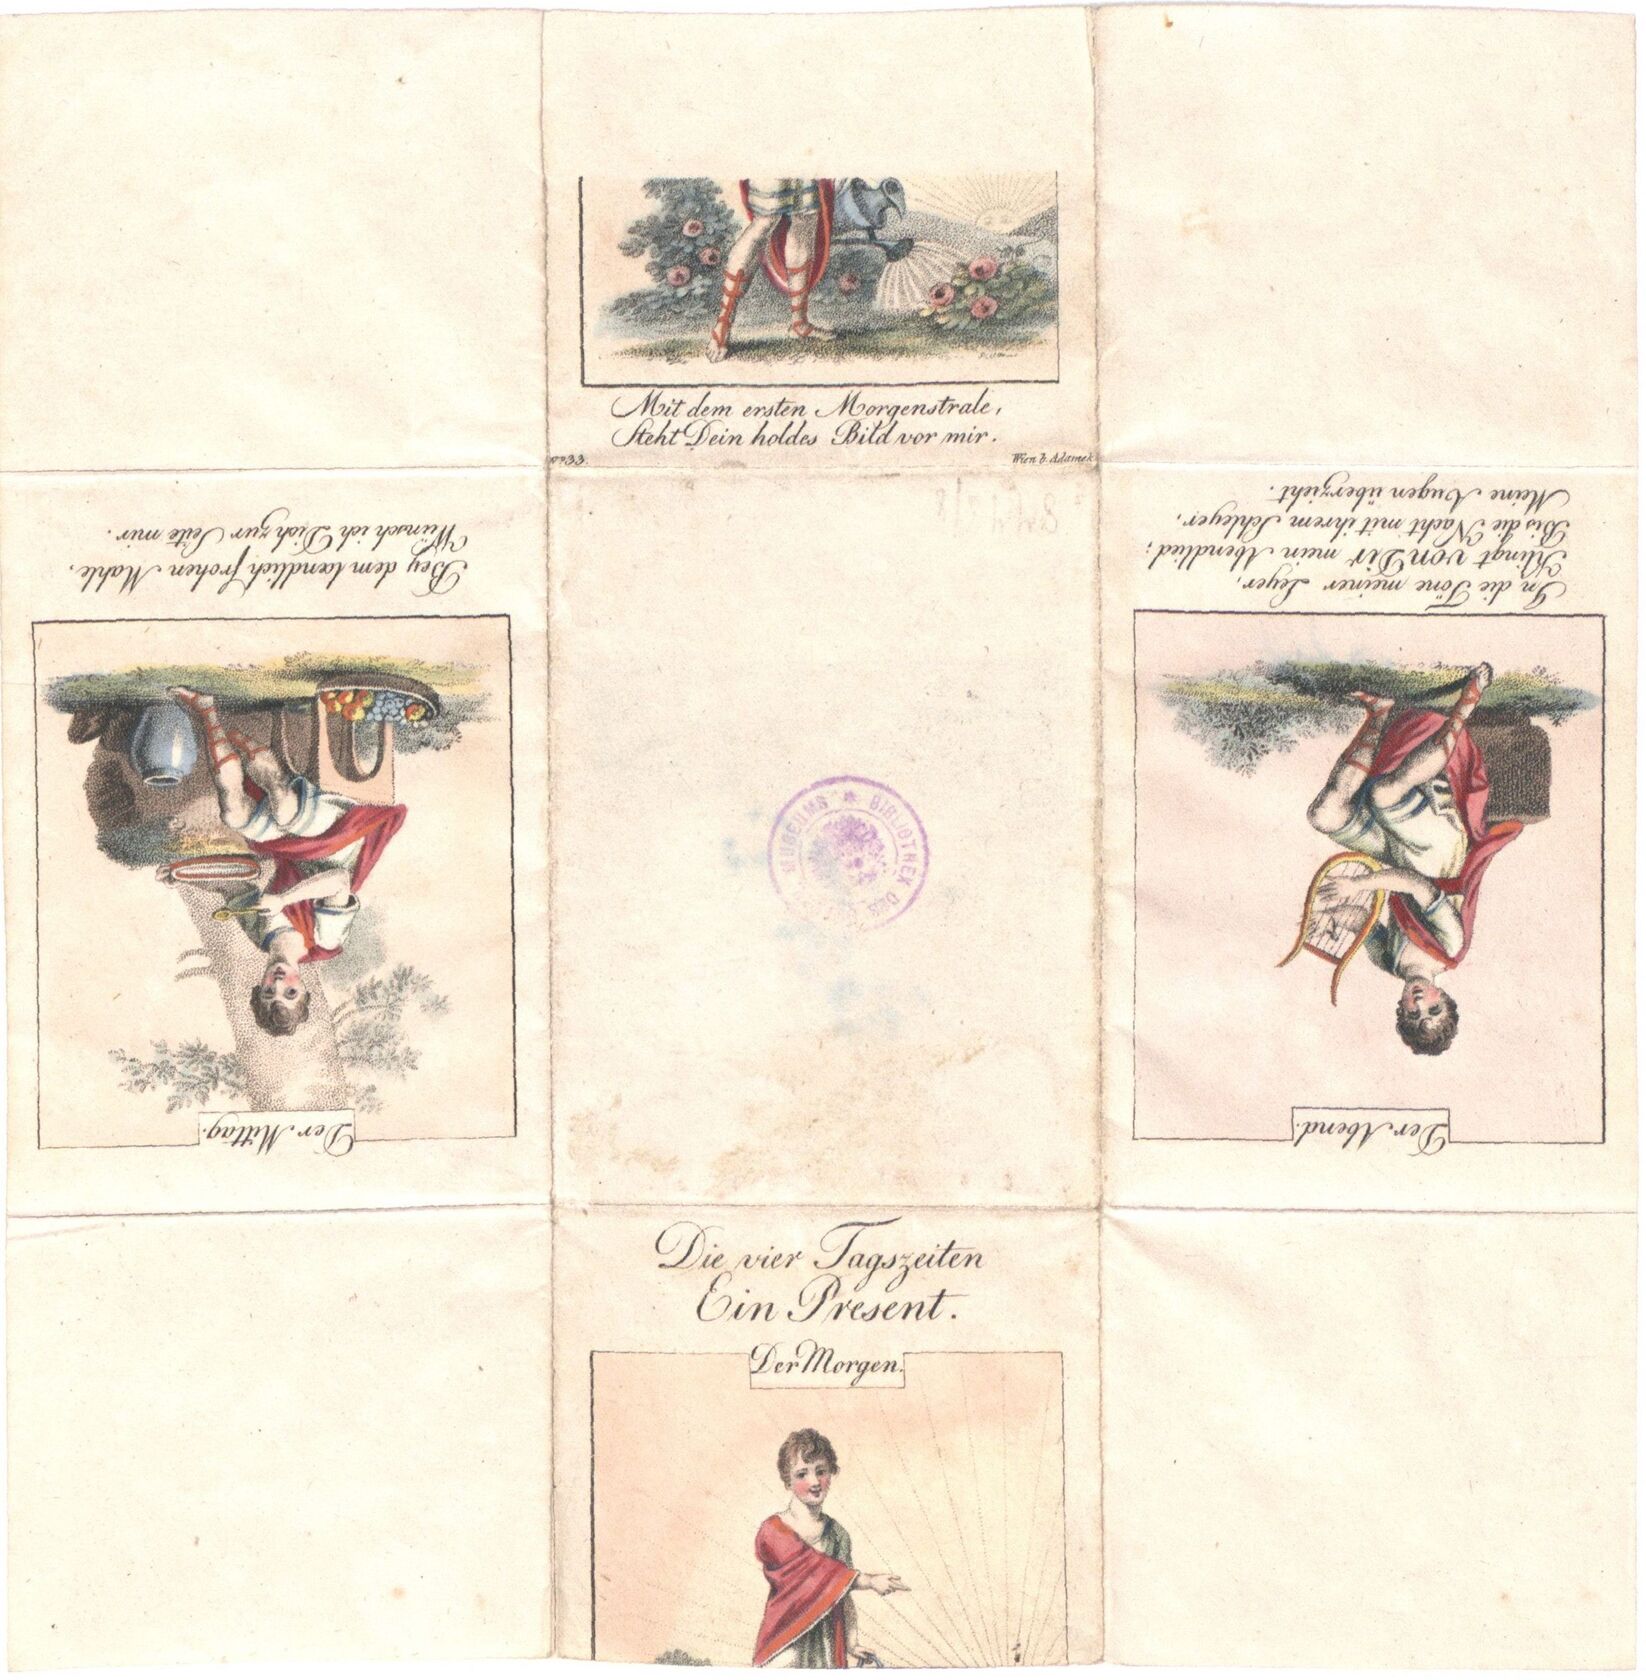 Mit dem ersten Morgenstrale,
Steht Dein holdes Bild vor mir.
No 33.
Wien b. Adamek
Der Mittag.
Bey dem lændlich frohen Mahle,
Wünsch ich Dich zur Seite mir.
Der Abend.
In die Töne meiner Leyer,
Klingt von Dir mein Abendlied;
Bis die Nacht mit ihrem Schleyer,
Meine Augen überzieht.
BIBLIOTHEK DES
MUSEUMS
Die vier Tagszeiten
Ein Present.
Der Morgen.